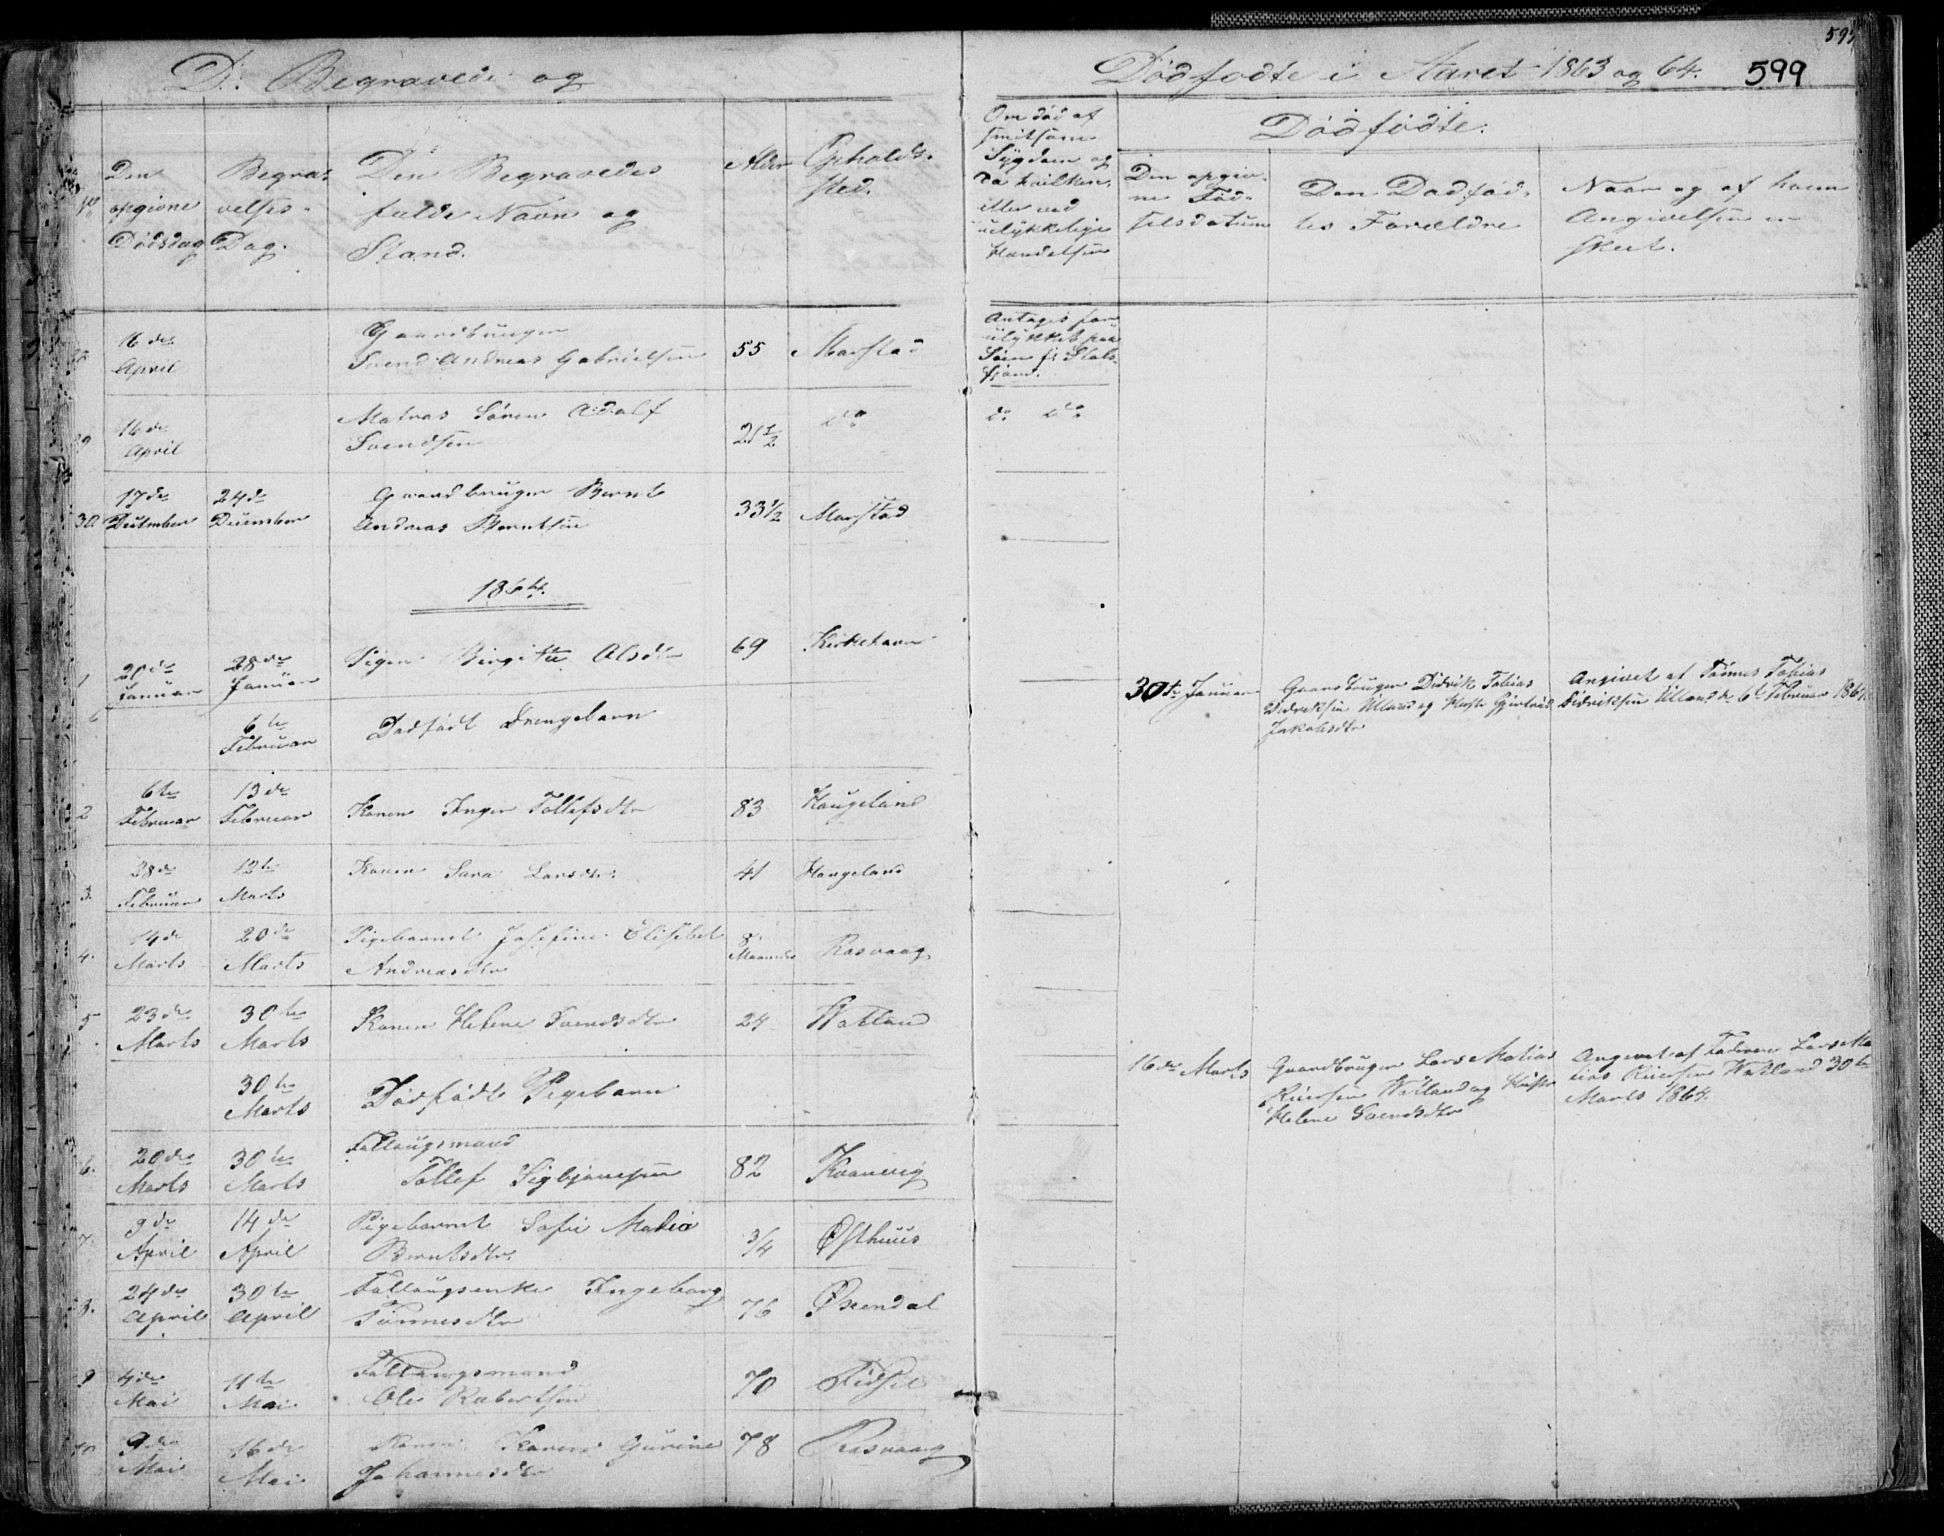 D: Begravede og
Dødfødte i Aaret 1863 og 64.
599
Den
opgivne
Dødsdag
Begra-
velses-
Dag.
Den Begravedes
fulde Navn og
Stand.
Alder
Opholds-
sted.
Om død af
smitsom
Sygdom og
da hvilken,
eller ved
ulykkelige
Hændelser
Dødfødte:
Den opgiv-
ne Fød-
selsdatum
Den Dødfød-
tes Forældre
Naar og af hvem
Angivelsen er
skeet.
16de
April
Gaardbruger
Svend Andreas Gabrielsen
55
Marstad
Antages for-
ulykket paa
Søen
16de
April
Matros Søren Adolf
Svendsen
21 1/2
do
do do
30
17de
December
24de
December
Gaardbruger Bernt
Andreas Berntsen
33 1/2
Marstad
1864.
1
20de
Januar
28de
Januar
Pigen Birgitte Olsdtr
69
Kirkehavn
6te
Februar
Dødfødt Drengebarn
30te Januar
Gaardbruger Didrik Tobias
Didriksen Ulland og Hustr Gjertrud
Jakobsdtr
Angivet af Tønnes Tobias
Didriksen Ulland d. 6te Februar 1864.
2
6te
Februar
13de
Februar
Konen Inger Tollefsdtr
83
Haugeland
3.
28de
Februar
12te
Marts
Konen Sara Larsdtr:
41
Haugeland
4.
14de
Marts
20de
Marts
Pigebarnet Josefine Elisebet
Andreasdtr
8
Maaneder
Rasvaag
5
23de
Marts
30te
Marts
Konen Helene Svendsdtr
24
Watland
30te
Marts
Dødfødt Pigebarn
16de Marts
Gaardbruger Lars Matias
Reiersen Watland og Hustr
Helene Svendsdtr
Angivet af Faderen Lars Ma
tias Reiersen Watland 30te
Marts 1864.
6.
20de
Marts
30te
Marts
Fattigmand
Tollef Sigbjørnsen
82
Kvanvig
7.
9de
April
14de
April
Pigebarnet Sofie Maria
Berntsdtr.
3/4
Østhuus
8.
24de
April
30te
April
Ingeborg
Tønnesdtr
76
Øxendal
9
4de
Mai
11te
Mai
Ole Robertsen
70
Fidsel
10
9de
Mai
16de
Mai
Konen Karen Gurine
Johannesdtr
78
Rasvaag